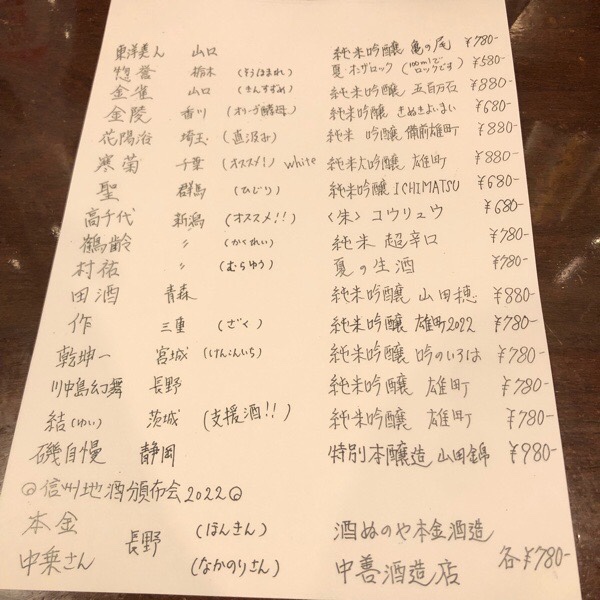 東洋美人 山口 純米吟醸 亀の尾 ¥780-
惣誉 栃木 (そうほまれ) 夏・オンザロック (100mlでロックです) ¥580-
金雀 山口 (きんすずめ) 純米吟醸 五百万石 ¥880-
金陵 香川 (オリーブ酵母) 純米吟醸 きぬきよいまい ¥680-
花陽浴 埼玉 (直汲み) 純米 吟醸 備前雄町 ¥880-
寒菊 千葉 (オススメ!) white 純米大吟醸 雄町 ¥880-
聖 群馬 (ひじり) 純米吟醸 ICHIMATSU ¥680-
高千代 新潟 (オススメ!!) <朱> コウリュウ ¥680-
鶴齢 〃 (かくれい) 純米 超辛口 ¥780-
村祐 〃 (むらゆう) 夏の生酒 ¥780-
田酒 青森 純米吟醸 山田穂 ¥880-
作 三重 (ざく) 純米吟醸 雄町2022 ¥780-
乾坤一 宮城 (けんこんいち) 純米吟醸 吟のいろは ¥780-
川中島幻舞 長野 純米吟醸 雄町 ¥780-
結(ゆい) 茨城 (支援酒!!) 純米吟醸 雄町 ¥780-
磯自慢 静岡 特別本醸造 山田錦 ¥980-
信州地酒頒布会2022
本金 長野 (ほんきん) 酒ぬのや本金酒造
中乗さん (なかのりさん) 中善酒造店 各¥780-